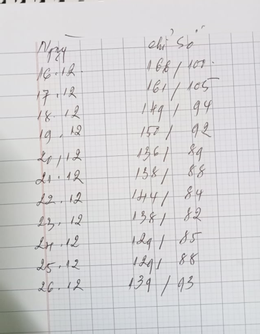 Ngày chỉ số
16.12 168/100
17.12 161/105
18.12 149/94
19.12 150/92
20.12 136/89
21.12 138/88
22.12 144/84
23.12 138/82
24.12 129/85
25.12 129/88
26.12 139/93